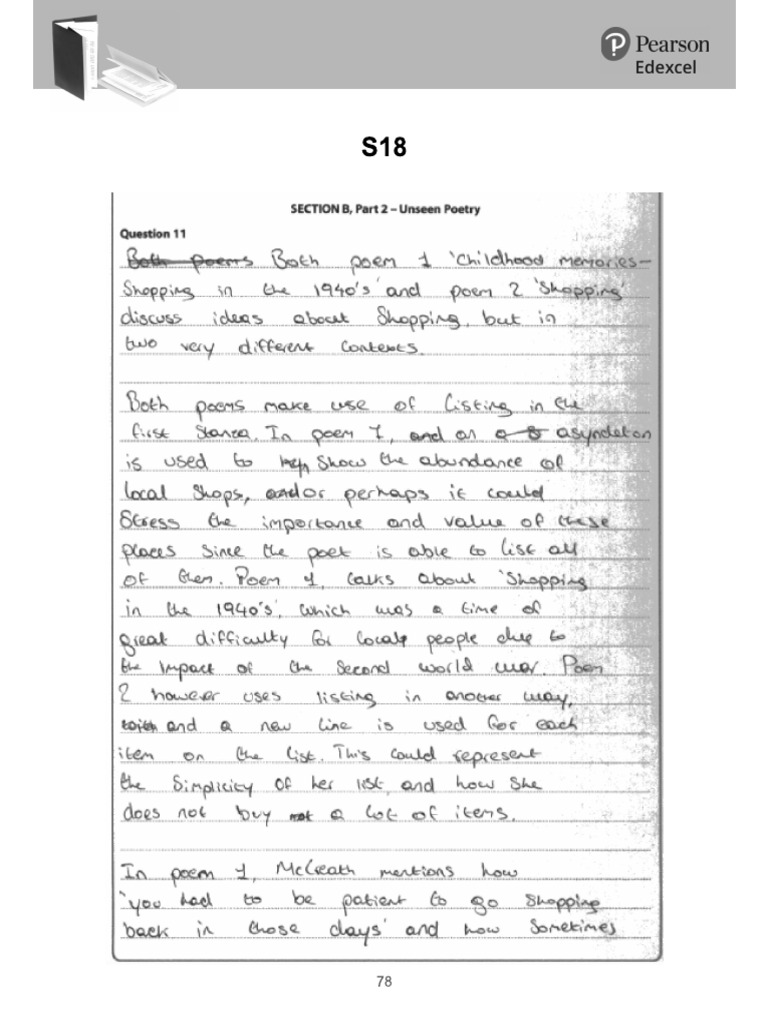 Pearson
Edexcel
S18
SECTION B, Part 2 – Unseen Poetry
Question 11
Both poems Both poem 1 'Childhood memories–
Shopping in the 1940's' and poem 2 'Shopping'
discuss ideas about Shopping, but in
two very different contexts.
Both poems make use of listing in the
first Stanza. In poem 1, and an a asyndeton
is used to show the abundance of
local Shops, and or perhaps it could
Stress the importance and value of these
places since the poet is able to list all
of them. Poem 1, talks about 'Shopping
in the 1940's', which was a time of
great difficulty for locals people due to
the impact of the Second world war. Poem
2 however uses listing in another way,
with and a new line is used for each
item on the list. This could represent
the Simplicity of her list, and how She
does not buy not a lot of items.
In poem 1, McGreath mentions how
'you had to be patient to go Shopping
back in those days' and how Sometimes
78